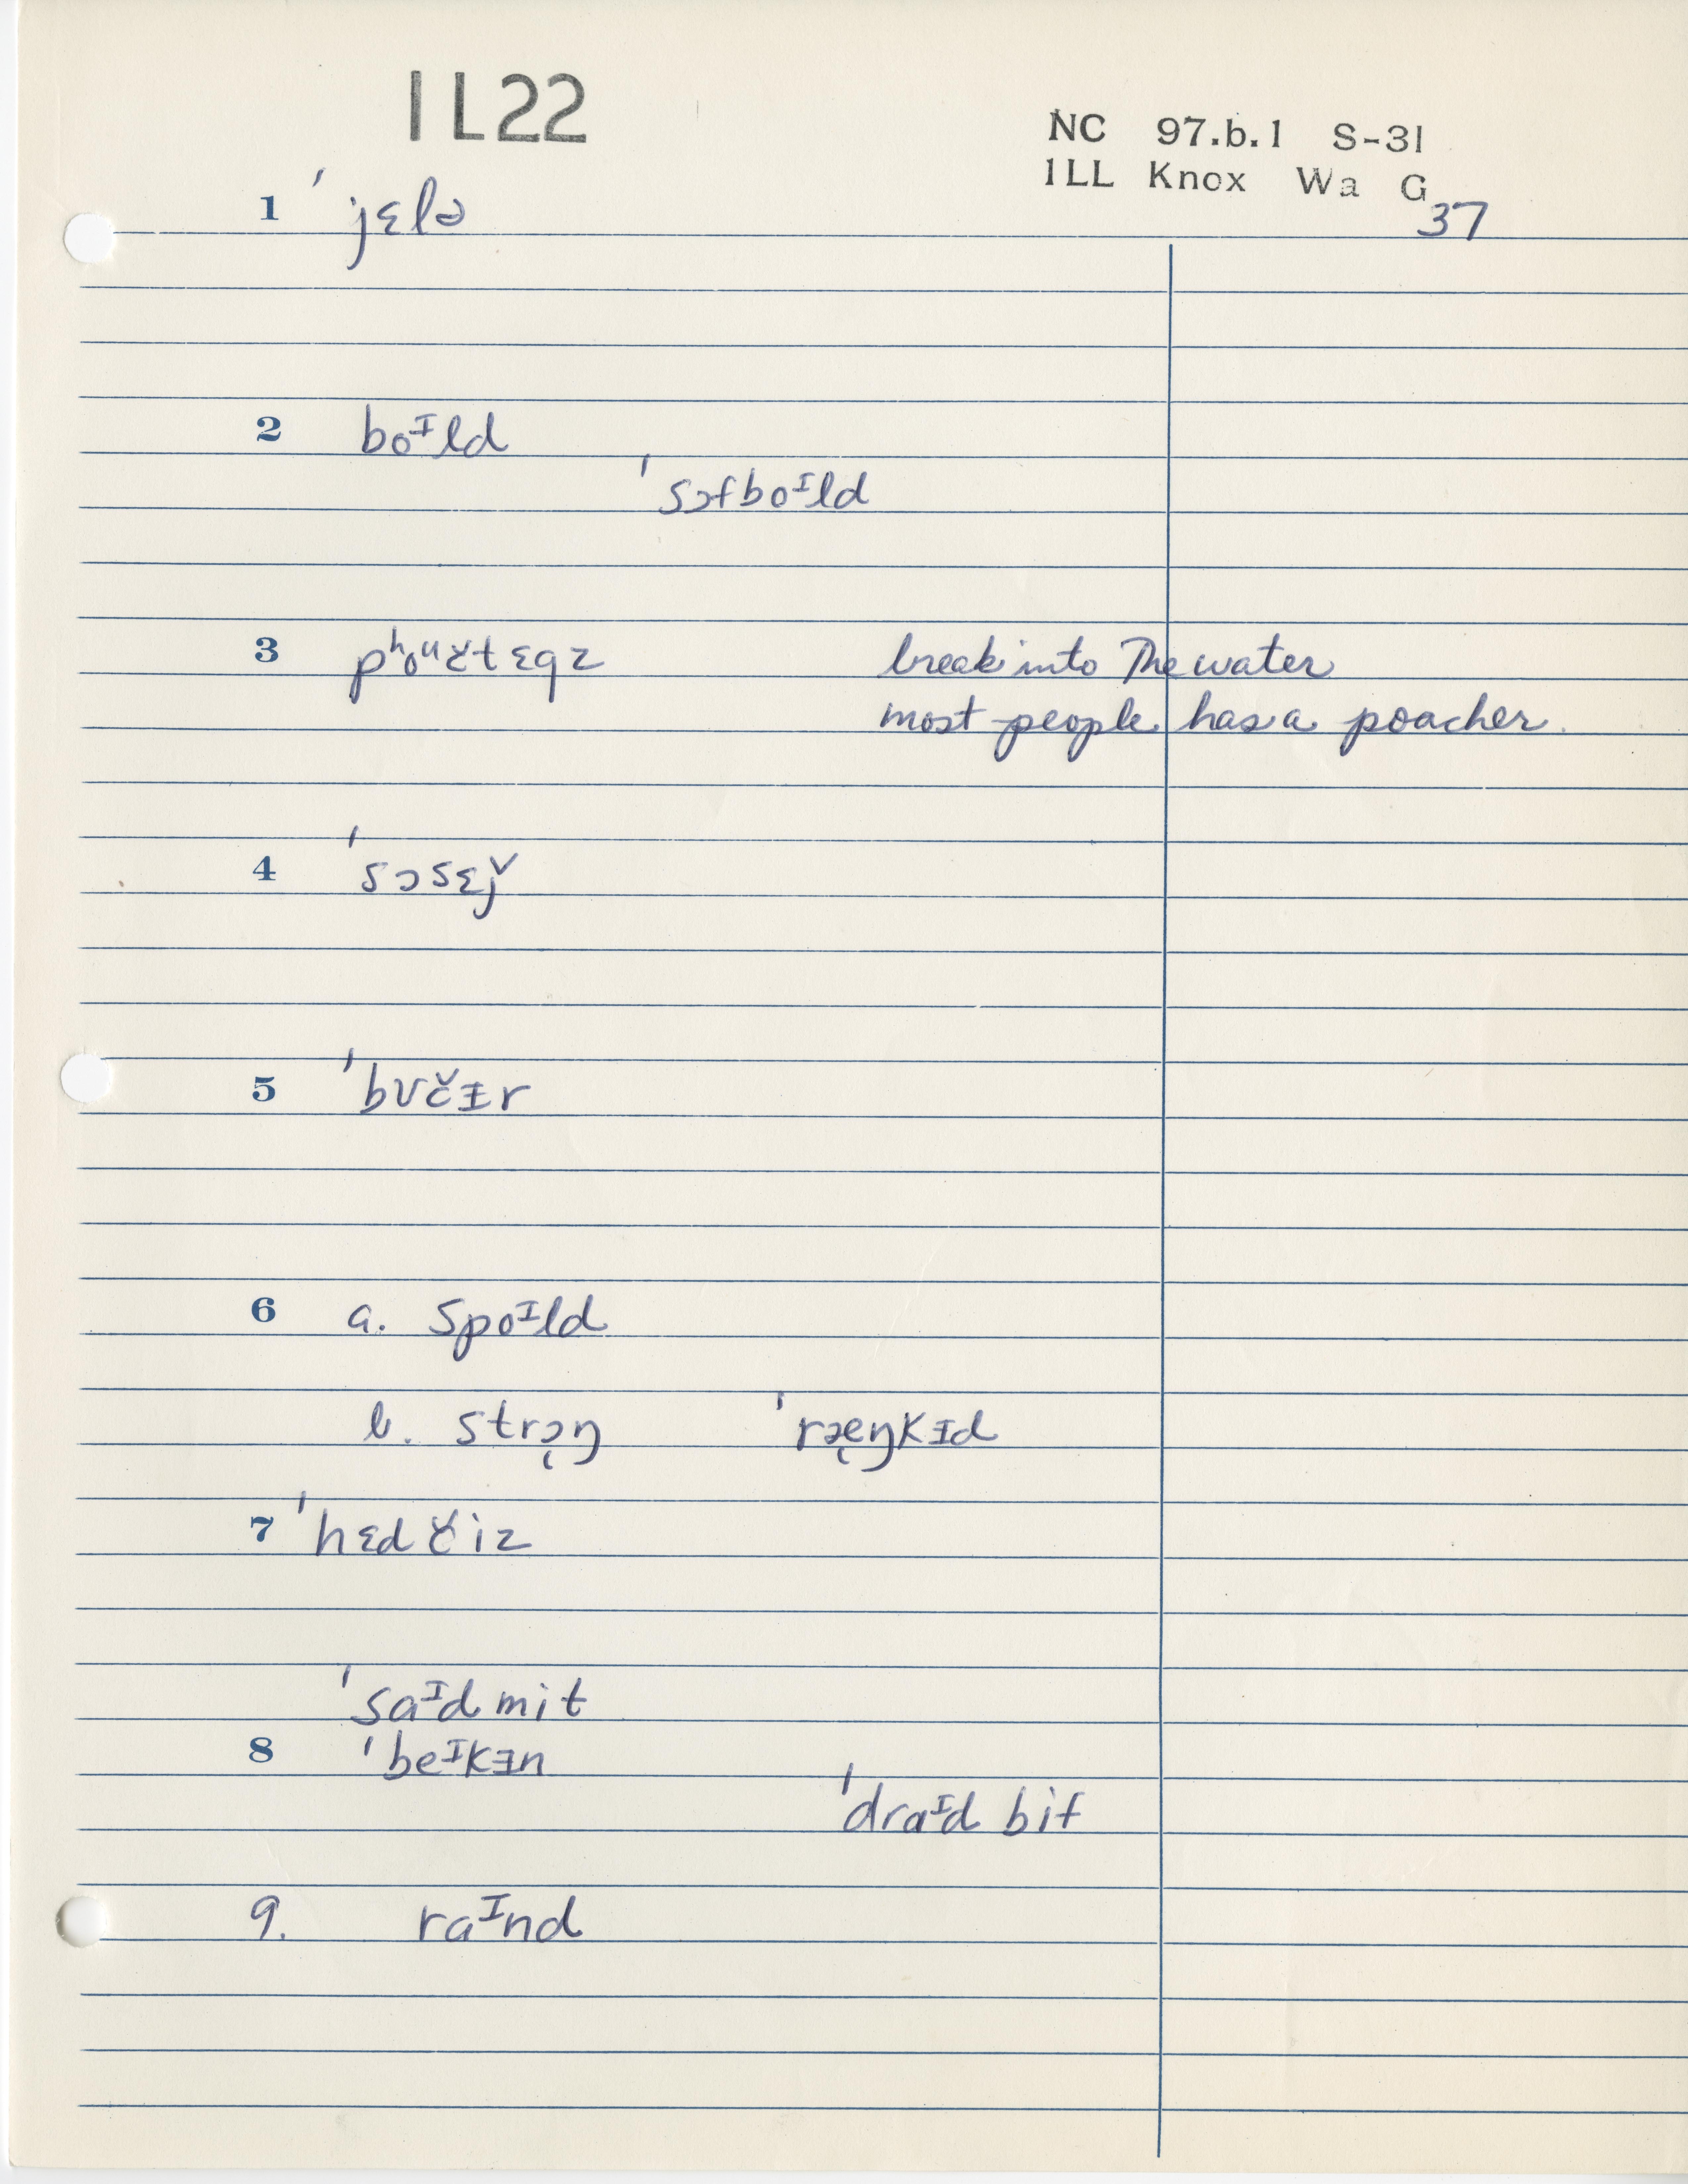 IL22
NC 97.b.1 S-31
ILL Knox Wa G
37
1 ˈjɛlə
2 boᴵld
ˈsɔfboᴵld
3 pʰoᵘč̵tɛgz break into The water
most people has a poacher.
4 ˈsɔsɛǰ
5 ˈbʊčɪ̵r
6 a. spoᴵld
b. strɔ̨ŋ ˈræ̨ŋkɪ̵d
7 ˈhɛdč̵iz
ˈsaᴵdmit
8 ˈbeᴵkɪ̵n
ˈdraᴵd bif
9. raᴵnd